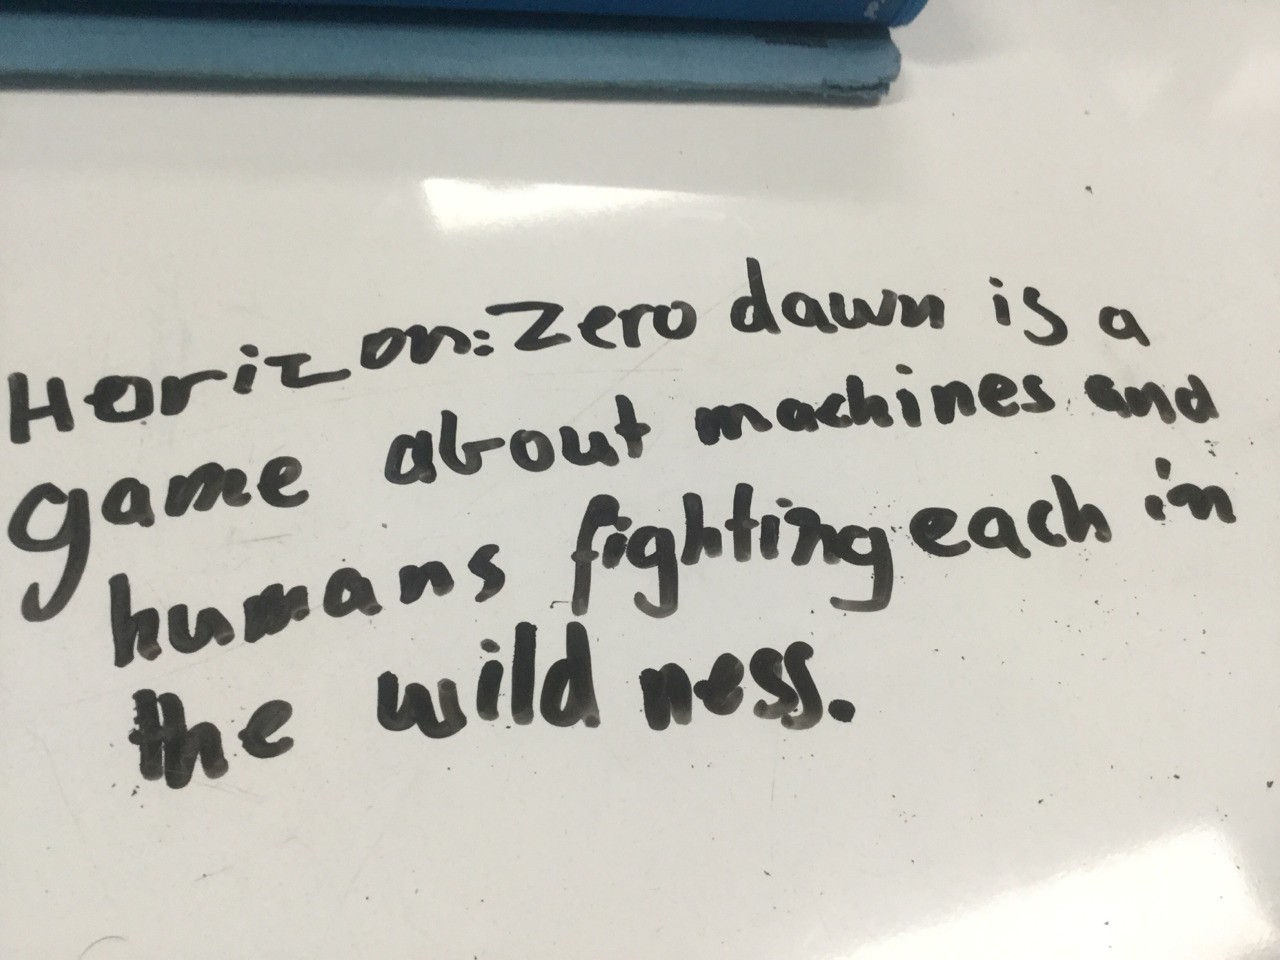 Horizon: Zero dawn is a
game about machines and
humans fighting each in
the wild ness.